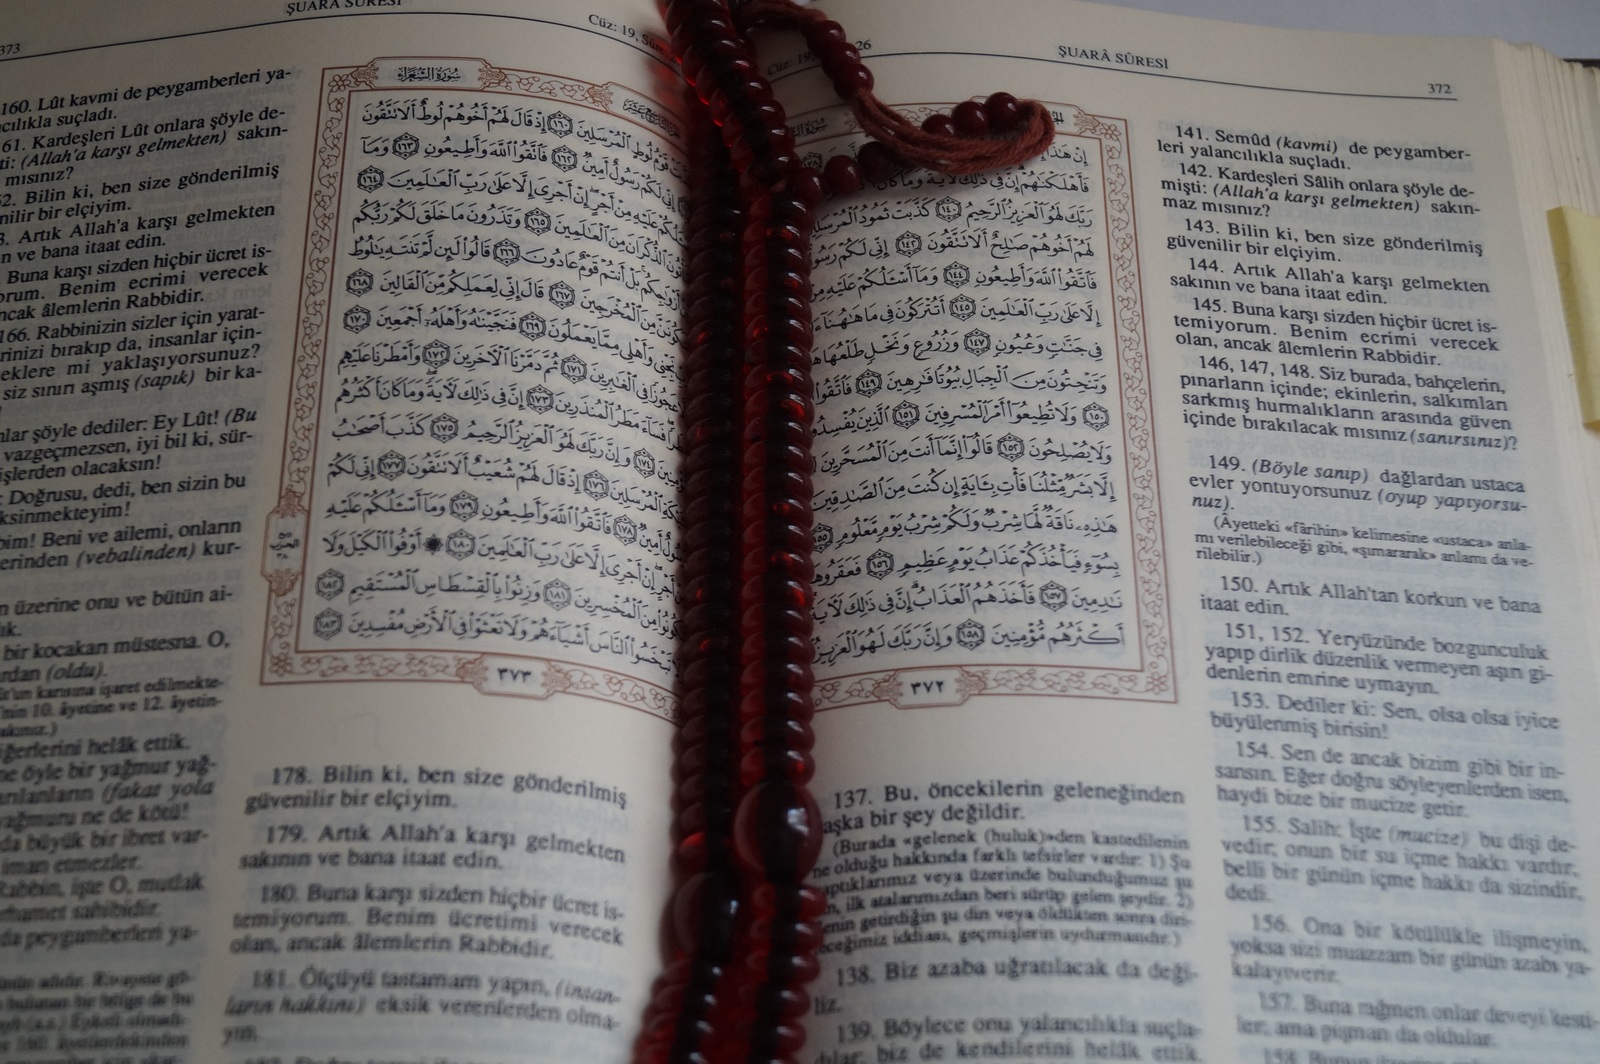 ŞUARÂ SÛRESİ
372
إِنْ هَٰذَا
فَأَهْلَكْنَاهُمْ إِنَّ فِي ذَٰلِكَ لَآيَةً وَمَا كَانَ
رَبَّكَ لَهُوَ الْعَزِيزُ الرَّحِيمُ ﴿١٤٠﴾ كَذَّبَتْ ثَمُودُ الْمُرْسَلِينَ
لَهُمْ أَخُوهُمْ صَالِحٌ أَلَا تَتَّقُونَ ﴿١٤٢﴾ إِنِّي لَكُمْ رَسُولٌ
فَاتَّقُوا اللَّهَ وَأَطِيعُونِ ﴿١٤٤﴾ وَمَا أَسْـَٔلُكُمْ عَلَيْهِ مِنْ
إِلَّا عَلَىٰ رَبِّ الْعَالَمِينَ ﴿١٤٥﴾ أَتُتْرَكُونَ فِي مَا هَاهُنَا
فِي جَنَّاتٍ وَعُيُونٍ ﴿١٤٧﴾ وَزُرُوعٍ وَنَخْلٍ طَلْعُهَا
وَتَنْحِتُونَ مِنَ الْجِبَالِ بُيُوتًا فَارِهِينَ ﴿١٤٩﴾ فَاتَّقُوا
﴿١٥٠﴾ وَلَا تُطِيعُوا أَمْرَ الْمُسْرِفِينَ ﴿١٥١﴾ الَّذِينَ يُفْسِدُونَ
وَلَا يُصْلِحُونَ ﴿١٥٢﴾ قَالُوا إِنَّمَا أَنْتَ مِنَ الْمُسَحَّرِينَ
إِلَّا بَشَرٌ مِثْلُنَا فَأْتِ بِـَٔايَةٍ إِنْ كُنْتَ مِنَ الصَّادِقِينَ
هَٰذِهِ نَاقَةٌ لَهَا شِرْبٌ وَلَكُمْ شِرْبُ يَوْمٍ مَعْلُومٍ ﴿١٥٥﴾
بِسُوءٍ فَيَأْخُذَكُمْ عَذَابُ يَوْمٍ عَظِيمٍ ﴿١٥٦﴾ فَعَقَرُوهَا
نَادِمِينَ ﴿١٥٧﴾ فَأَخَذَهُمُ الْعَذَابُ إِنَّ فِي ذَٰلِكَ لَآيَةً
أَكْثَرُهُمْ مُؤْمِنِينَ ﴿١٥٨﴾ وَإِنَّ رَبَّكَ لَهُوَ الْعَزِيزُ
٣٧٢
137. Bu, öncekilerin geleneğinden
aşka bir şey değildir.
(Burada «gelenek (huluk)»den kastedilenin
ne olduğu hakkında farklı tefsirler vardır: 1) Şu
aptıklarımız veya üzerinde bulunduğumuz şu
n, ilk atalarımızdan beri sürüp gelen şeydir. 2)
enin getirdiğin şu din veya öldükten sonra diri-
eceğimiz iddiası, geçmişlerin uydurmasıdır.)
138. Biz azaba uğratılacak da deği-
liz.
139. Böylece onu yalancılıkla suçla-
dılar; biz de kendilerini helâk ettik.
141. Semûd (kavmi) de peygamber-
leri yalancılıkla suçladı.
142. Kardeşleri Sâlih onlara şöyle de-
mişti: (Allah'a karşı gelmekten) sakın-
maz mısınız?
143. Bilin ki, ben size gönderilmiş
güvenilir bir elçiyim.
144. Artık Allah'a karşı gelmekten
sakının ve bana itaat edin.
145. Buna karşı sizden hiçbir ücret is-
temiyorum. Benim ecrimi verecek
olan, ancak âlemlerin Rabbidir.
146, 147, 148. Siz burada, bahçelerin,
pınarların içinde; ekinlerin, salkımları
sarkmış hurmalıkların arasında güven
içinde bırakılacak mısınız (sanırsınız)?
149. (Böyle sanıp) dağlardan ustaca
evler yontuyorsunuz (oyup yapıyorsu-
nuz).
(Âyetteki «fârihin» kelimesine «ustaca» anla-
mı verilebileceği gibi, «şımararak» anlamı da ve-
rilebilir.)
150. Artık Allah'tan korkun ve bana
itaat edin.
151, 152. Yeryüzünde bozgunculuk
yapıp dirlik düzenlik vermeyen aşırı gi-
denlerin emrine uymayın.
153. Dediler ki: Sen, olsa olsa iyice
büyülenmiş birisin!
154. Sen de ancak bizim gibi bir in-
sansın. Eğer doğru söyleyenlerden isen,
haydi bize bir mucize getir.
155. Salih: İşte (mucize) bu dişi de-
vedir; onun bir su içme hakkı vardır,
belli bir günün içme hakkı da sizindir,
dedi.
156. Ona bir kötülükle ilişmeyin,
yoksa sizi muazzam bir günün azabı ya-
kalayıverir.
157. Buna rağmen onlar deveyi kesti-
ler; ama pişman da oldular.
373
ŞUARÂ SÛRESİ
Cüz: 19,
سُورَةُ الشُّعَرَاءِ
قَوْمُ لُوطٍ الْمُرْسَلِينَ ﴿١٦٠﴾ إِذْ قَالَ لَهُمْ أَخُوهُمْ لُوطٌ أَلَا تَتَّقُونَ
إِنِّي لَكُمْ رَسُولٌ أَمِينٌ ﴿١٦٢﴾ فَاتَّقُوا اللَّهَ وَأَطِيعُونِ ﴿١٦٣﴾ وَمَا
عَلَيْهِ مِنْ أَجْرٍ إِنْ أَجْرِيَ إِلَّا عَلَىٰ رَبِّ الْعَالَمِينَ ﴿١٦٤﴾
الذُّكْرَانَ مِنَ الْعَالَمِينَ ﴿١٦٥﴾ وَتَذَرُونَ مَا خَلَقَ لَكُمْ رَبُّكُمْ
أَزْوَاجِكُمْ بَلْ أَنْتُمْ قَوْمٌ عَادُونَ ﴿١٦٦﴾ قَالُوا لَئِنْ لَمْ تَنْتَهِ يَا لُوطُ
مِنَ الْمُخْرَجِينَ ﴿١٦٧﴾ قَالَ إِنِّي لِعَمَلِكُمْ مِنَ الْقَالِينَ ﴿١٦٨﴾
وَأَهْلِي مِمَّا يَعْمَلُونَ ﴿١٦٩﴾ فَنَجَّيْنَاهُ وَأَهْلَهُ أَجْمَعِينَ ﴿١٧٠﴾
عَجُوزًا فِي الْغَابِرِينَ ﴿١٧١﴾ ثُمَّ دَمَّرْنَا الْآخَرِينَ ﴿١٧٢﴾ وَأَمْطَرْنَا عَلَيْهِمْ
فَسَاءَ مَطَرُ الْمُنْذَرِينَ ﴿١٧٣﴾ إِنَّ فِي ذَٰلِكَ لَآيَةً وَمَا كَانَ أَكْثَرُهُمْ
﴿١٧٤﴾ وَإِنَّ رَبَّكَ لَهُوَ الْعَزِيزُ الرَّحِيمُ ﴿١٧٥﴾ كَذَّبَ أَصْحَابُ
الْمُرْسَلِينَ ﴿١٧٦﴾ إِذْ قَالَ لَهُمْ شُعَيْبٌ أَلَا تَتَّقُونَ ﴿١٧٧﴾ إِنِّي لَكُمْ
أَمِينٌ ﴿١٧٨﴾ فَاتَّقُوا اللَّهَ وَأَطِيعُونِ ﴿١٧٩﴾ وَمَا أَسْـَٔلُكُمْ عَلَيْهِ
أَجْرٍ إِنْ أَجْرِيَ إِلَّا عَلَىٰ رَبِّ الْعَالَمِينَ ﴿١٨٠﴾ أَوْفُوا الْكَيْلَ وَلَا
تَكُونُوا مِنَ الْمُخْسِرِينَ ﴿١٨١﴾ وَزِنُوا بِالْقِسْطَاسِ الْمُسْتَقِيمِ ﴿١٨٢﴾
تَبْخَسُوا النَّاسَ أَشْيَاءَهُمْ وَلَا تَعْثَوْا فِي الْأَرْضِ مُفْسِدِينَ ﴿١٨٣﴾
٣٧٣
160. Lût kavmi de peygamberleri ya-
cılıkla suçladı.
61. Kardeşleri Lût onlara şöyle de-
ti: (Allah'a karşı gelmekten) sakın-
mısınız?
2. Bilin ki, ben size gönderilmiş
nilir bir elçiyim.
3. Artık Allah'a karşı gelmekten
n ve bana itaat edin.
Buna karşı sizden hiçbir ücret is-
orum. Benim ecrimi verecek
ncak âlemlerin Rabbidir.
166. Rabbinizin sizler için yarat-
rinizi bırakıp da, insanlar için-
eklere mi yaklaşıyorsunuz?
siz sınırı aşmış (sapık) bir ka-
nlar şöyle dediler: Ey Lût! (Bu
vazgeçmezsen, iyi bil ki, sür-
işlerden olacaksın!
Doğrusu, dedi, ben sizin bu
ksinmekteyim!
bim! Beni ve ailemi, onların
erinden (vebalinden) kur-
n üzerine onu ve bütün ai-
ık.
bir kocakarı müstesna. O,
rdan (oldu).
karısına işaret edilmekte-
'nin 10. âyetine ve 12. âyetin-
iğerlerini helâk ettik.
ne öyle bir yağmur yağ-
arılanların (fakat yola
yağmuru ne de kötü!
da büyük bir ibret var-
iman etmezler.
Rabbin, işte O, mutlak
rhamet sahibidir.
da peygamberleri ya-
178. Bilin ki, ben size gönderilmiş
güvenilir bir elçiyim.
179. Artık Allah'a karşı gelmekten
sakının ve bana itaat edin.
180. Buna karşı sizden hiçbir ücret is-
temiyorum. Benim ücretimi verecek
olan, ancak âlemlerin Rabbidir.
181. Ölçüyü tastamam yapın, (insan-
ların hakkını) eksik verenlerden olma-
yın.